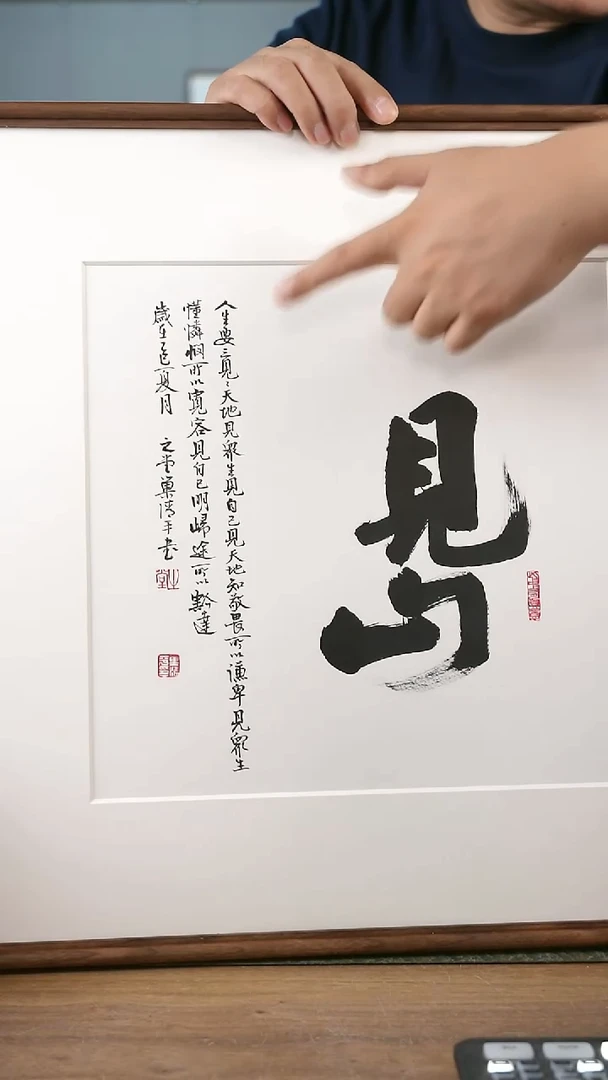 見山
人生要三見〻天地見眾生見自己見天地知敬畏所以謙卑見眾生
懂憐憫所以寬容見自己明歸途所以豁達
歲在乙巳夏月 之堂巢清平書